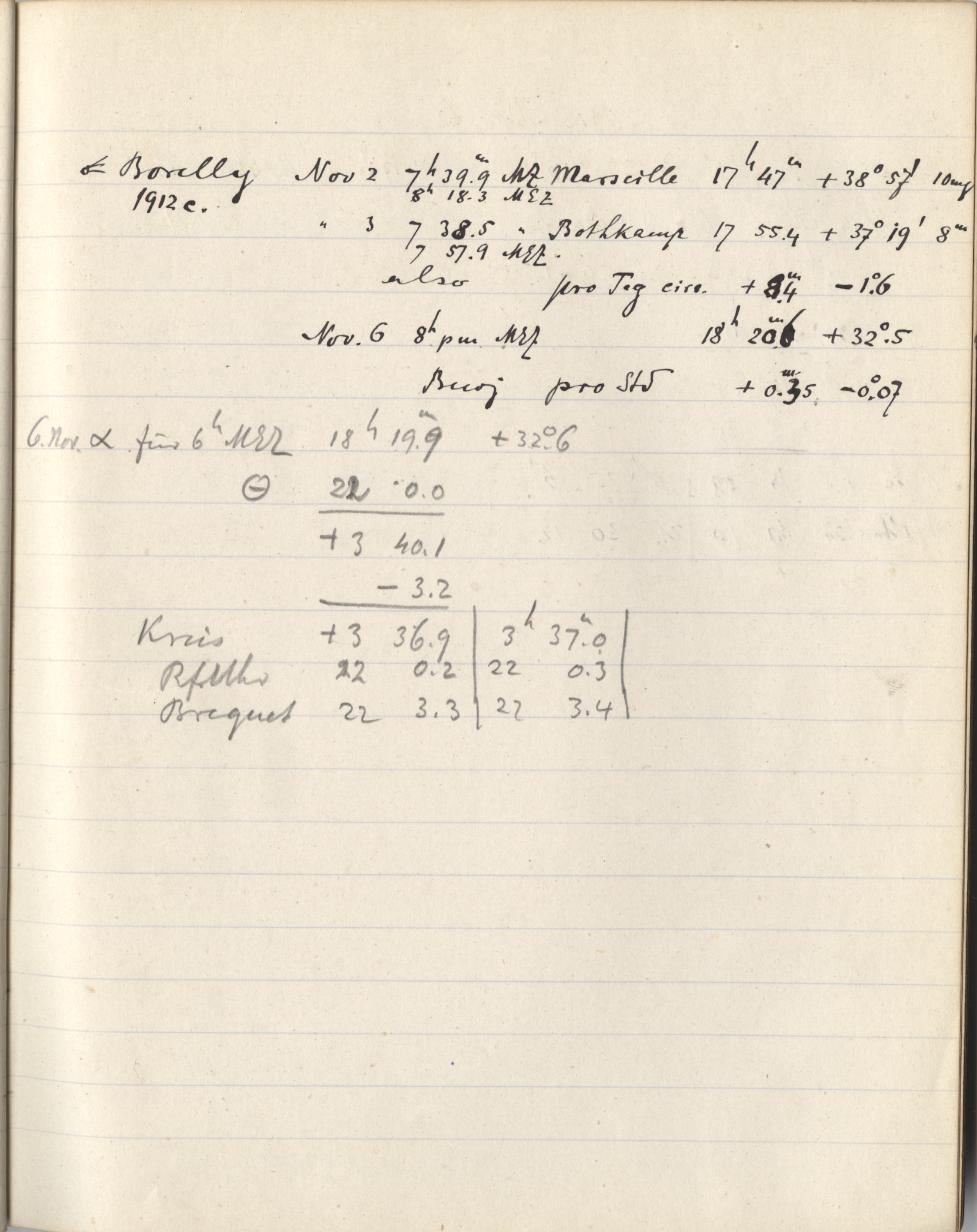 ☄ Borelly Nov 2 7h 39.9m MZ Marseille 17h 47m + 38° 57' 10mg
1912 c. 8h 18.3 MEZ
" 3 7 38.5 " Bothkamp 17 55.4 + 37° 19' 8m
7 57.9 MEZ.
also pro Tag circ. + 8.4m - 1°.6
Nov. 6 8h pm MEZ 18h 20.6m + 32°.5
Bewg pro Std + 0.35m - 0°.07
6. Nov. α für 6h MEZ 18h 19.9m + 32°.6
Θ 22 0.0
+ 3 40.1
- 3.2
Kreis + 3 36.9 | 3h 37.0m |
22 0.2 | 22 0.3 |
Breguet 22 3.3 | 22 3.4 |